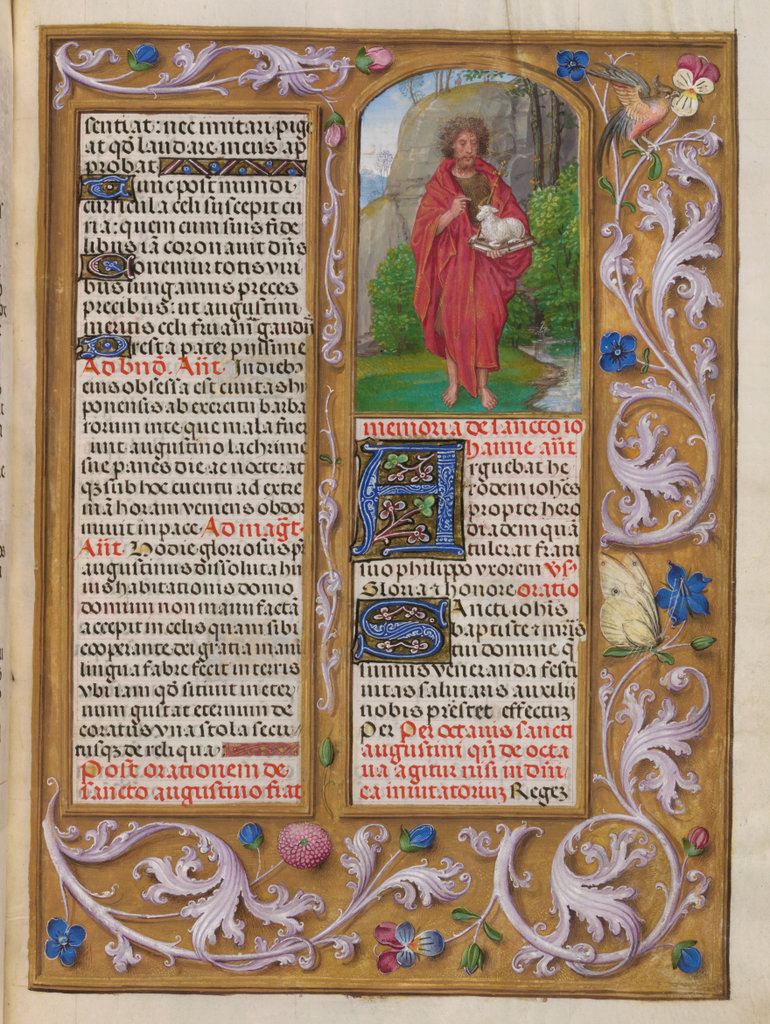 sentiat: nec imitari pigē
at qđ laudare meus ap
probat
Tunc post mundi
curricula celi suscepit cu
ria: quem cum suis fide
libus iā coronauit dñs
Conemur totis viri
bus iungamus preces
precibus: ut augustini
meritis celi fruām gaudiis
Presta pater piissime
Ad bñd. Añt. In dieb⁊
eius obsessa est ciuitas hi
ponensis ab exercitu barba
rorum inte que mala fuer
unt augustino lachrime
sue panes die ac nocte: at
q⁊ sub hoc euentu ad extre
mā horam veniens obdor
miuit in pace Ad mag̃t.
Añt. Hodie gloriosus p̄r
augustinus dissoluta hu
ius habitationis domo
domum non manu factā
accepit in celis quam sibi
cooperante dei gratia manu
lingua fabrefecit in terris
vbi iam qđ sitiuit inter
num gustat eternum de
coratus vna stola secu
rusq⁊ de reliqua
Post orationem de
sancto augustino fiat
memoria de sancto io
hanne añt
Arguebat he
rodem iohēs
propter hero
diadem quā
tulerat fratri
suo philippo vxorem vs.
Gloria ⁊ honore oratio
Sancti iohīs
baptiste ⁊ mr̃is
tui domine q̄
sumus veneranda festi
uitas salutaris auxilii
nobis prestet effectū
Per Per octauas sancti
augustini qñ de octa
ua agitur nisi in dñi
ca inuitatoriū Regē